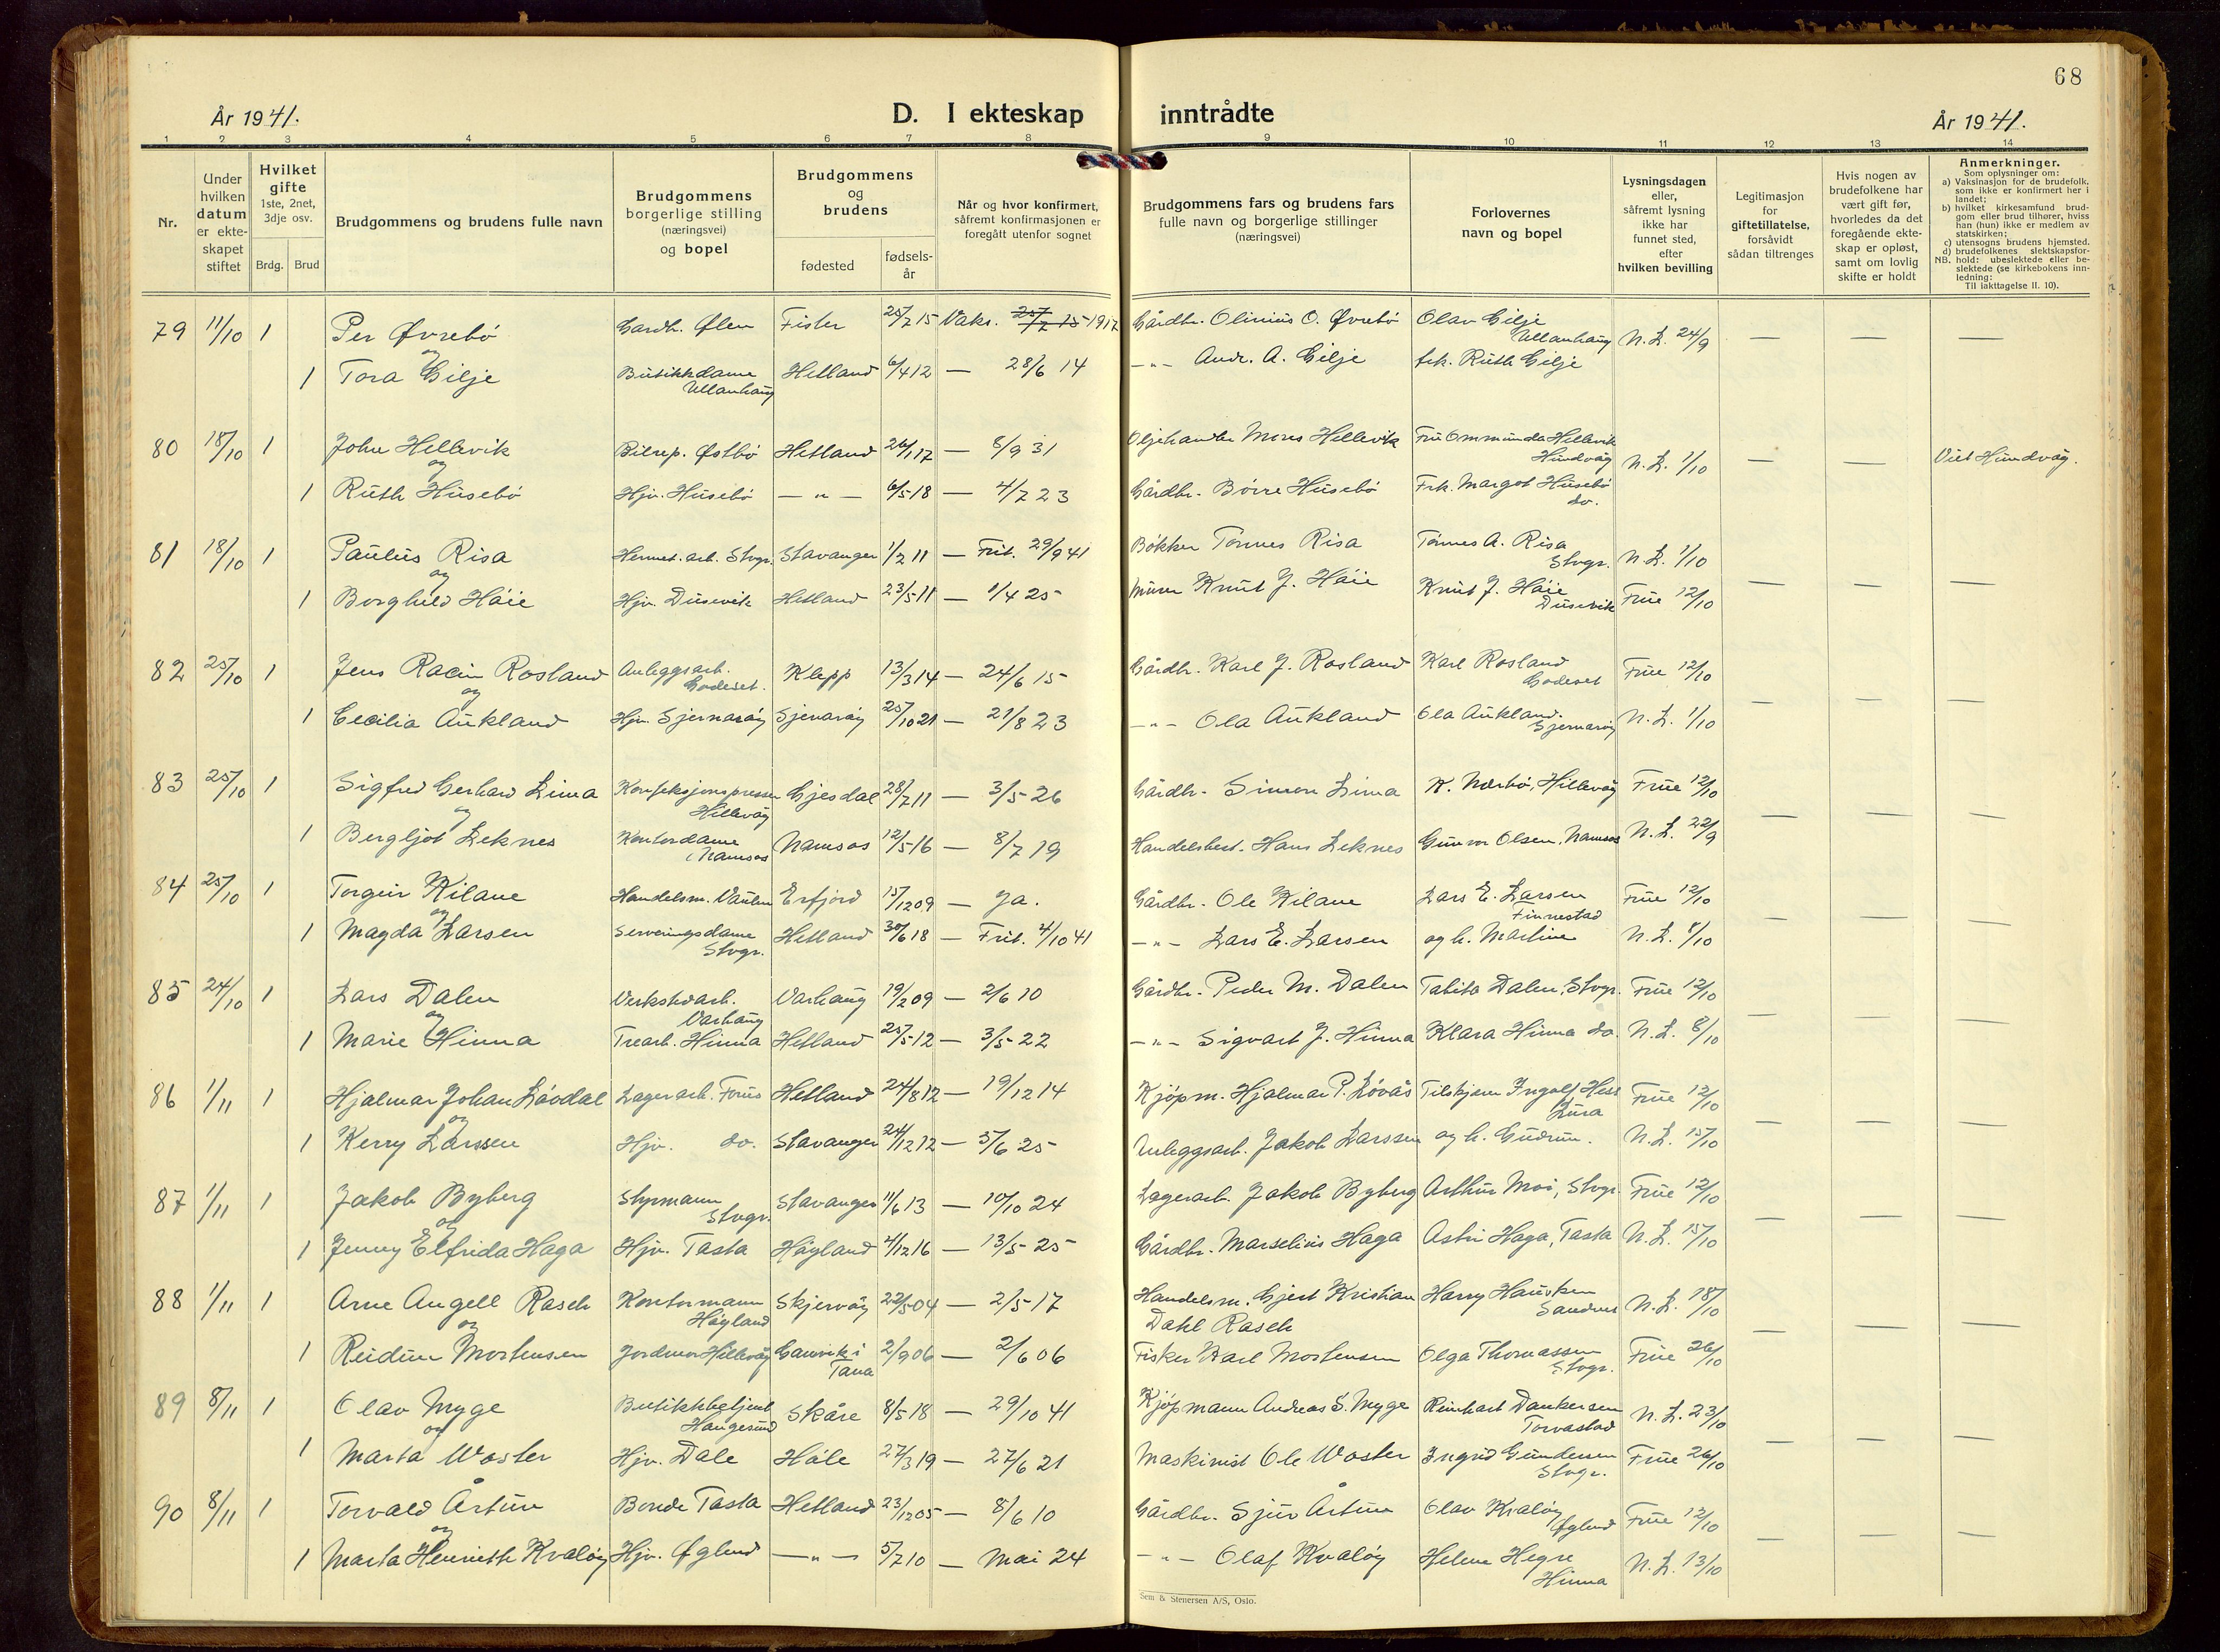 68
År 1941.
D. I ekteskap inntrådte
År 1941.
1 2 3 4 5 6 7 8 9 10 11 12 13 14
Nr.
Under hvilken datum er ekteskapet stiftet
Hvilket gifte 1ste, 2net, 3dje osv.
Brdg. Brud
Brudgommens og brudens fulle navn
Brudgommens borgerlige stilling (næringsvei) og bopel
Brudgommens og brudens
fødested
fødselsår
Når og hvor konfirmert, såfremt konfirmasjonen er foregått utenfor sognet
Brudgommens fars og brudens fars fulle navn og borgerlige stillinger (næringsvei)
Forlovernes navn og bopel
Lysningsdagen eller, såfremt lysning ikke har funnet sted, efter hvilken bevilling
Legitimasjon for giftetillatelse, forsåvidt sådan tiltrenges
Hvis nogen av brudefolkene har vært gift før, hvorledes da det foregående ekteskap er opløst, samt om lovlig skifte er holdt
Anmerkninger.
Som oplysninger om:
a) Vaksinasjon for de brudefolk, som ikke er konfirmert her i landet;
b) hvilket kirkesamfund brudgom eller brud tilhører, hviss han (hun) ikke er medlem av statskirken;
c) utensogns brudens hjemsted.
d) brudefolkenes slektskapsforhold: ubeslektede eller beslektede (se kirkebokens innledning:
NB.
Til iakttagelse II. 10).
79 11/10 1 Per Øvrebö Gardb. Ølen Fister 25/7 15 Vaks. 25/7 15 1917 Gårdbr. Olinius O. Øvrebö Olav Gilje Ullanhaug N.L. 24/9 — — —
og
1 Tora Gilje Butikkdame Ullanhaug Hetland 6/4 12 — 28/6 14 —"— Andr. A. Gilje frk. Ruth Gilje
80 18/10 1 John Hellevik Bilrep. Østbö Hetland 26/1 17 — 8/9 31 Oljehandler Mons Hellevik Fru Ommunda Hellevik Hundvåg N.L. 1/10 — — Viet Hundvåg.
og
1 Ruth Husebö Hjv. Husebö —"— 6/5 18 — 4/7 23 Gårdbr. Börre Husebö Frk. Margot Husebö do.
81 18/10 1 Paulus Risa Hermet. arb. Stvgr. Stavanger 1/2 11 — Frit. 29/9 41 Bökker Tönnes Risa Tönnes A. Risa Stvgr. N.L. 1/10
og
1 Borghild Höie Hjv. Dusevik Hetland 23/5 11 — 1/4 25 Murer Knut J. Höie Knut J. Höie Dusevik Frue 12/10 — — —
82 25/10 1 Jens Racin Rosland Anleggsarb. Godeset. Klepp 13/3 14 — 24/6 15 Gårdbr. Karl J. Rosland Karl Rosland Godeset Frue 12/10
og
1 Cecilia Aukland Hjv. Sjernaröy Sjernaröy 25/10 21 — 21/8 23 —"— Ola Aukland Ola Aukland. Sjernaröy N.L. 1/10 — — —
83 25/10 1 Sigfred Gerhard Lima Konfeksjonspresser Hillevåg Gjesdal 28/7 11 — 3/5 26 Gårdbr. Simon Lima K. Nærbö, Hillevåg Frue 12/10
og
1 Bergljot Leknes Kontordame Namsos Namsos 12/5 16 — 8/7 19 Handelsbest. Hans Leknes Gunvor Olsen, Namsos N.L. 22/9 — — —
84 25/10 1 Torgeir Kilane Handelsm. Vaulen Erfjord 15/12 09 — Ja. Gårdbr. Ole Kilane Lars E. Larsen Finnestad Frue 12/10
og
1 Magda Larsen Serveringsdame Stvgr. Hetland 30/6 18 — Frit. 4/10 41 —"— Lars E. Larsen og h. Martine N.L. 8/10 — — —
85 24/10 1 Lars Dalen Verkstedarb. Varhaug Varhaug 19/2 09 — 2/6 10 Gårdbr. Peder M. Dalen Tabita Dalen, Stvgr. Frue 12/10
og
1 Marie Hinna Trearb. Hinna Hetland 25/5 12 — 3/5 22 —"— Sigvart J. Hinna Klara Hinna do. N.L. 8/10 — — —
86 1/11 1 Hjalmar Johan Lövdal Lagerarb. Forus Hetland 24/8 12 — 19/12 14 Kjöpm. Hjalmar P. Lövås Tilskjærer Ingolf Hess Lura Frue 12/10
og
1 Kerry Larssen Hjv. do. Stavanger 24/12 12 — 5/6 25 Anleggsarb. Jakob Larssen og h. Gudrun. N.L. 15/10 — — —
87 1/11 1 Jakob Byberg Styrmann Stvgr. Stavanger 11/6 13 — 10/10 24 Lagerarb. Jakob Byberg Arthur Moi, Stvgr. Frue 12/10
og
1 Jenny Elfrida Haga Hjv. Tasta Höyland 4/12 16 — 13/5 25 Gårdbr. Marselius Haga Astri Haga, Tasta N.L. 15/10 — — —
88 1/11 1 Arne Angell Rasch Kontormann Höyland Skjervöy 22/5 04 — 2/5 17 Handelsm. Gjert Kristian Dahl Rasch Harry Hauken Sandnes N.L. 18/10
og
1 Reidun Mortensen Jordmor Hillevåg Gamvik i Tana 2/9 06 — 2/6 06 Fisker Karl Mortensen Olga Thomassen Stvgr. Frue 26/10 — — —
89 8/11 1 Olav Myge Butikkbetjent Haugesund Skåre 8/5 18 — 29/10 41 Kjöpmann Andreas S. Myge Reinhart Dankersen Torvastad N.L. 23/10
og
1 Marta Woster Hjv. Dale Höle 27/3 19 — 27/6 21 Maskinist Ole Woster Ingrid Gundersen Stvgr. Frue 26/10 — — —
90 8/11 1 Torvald Årtun Bonde Tasta Hetland 23/12 05 — 8/6 10 Gårdbr. Sjur Årtun Olav Kvalöy Øglend Frue 12/10
og
1 Marta Henriette Kvalöy Hjv. Øglend —"— 5/7 10 — Mai 24 —"— Olaf Kvalöy Helene Hegre Hinna N.L. 13/10 — — —
Sem & Stenersen A/S, Oslo.